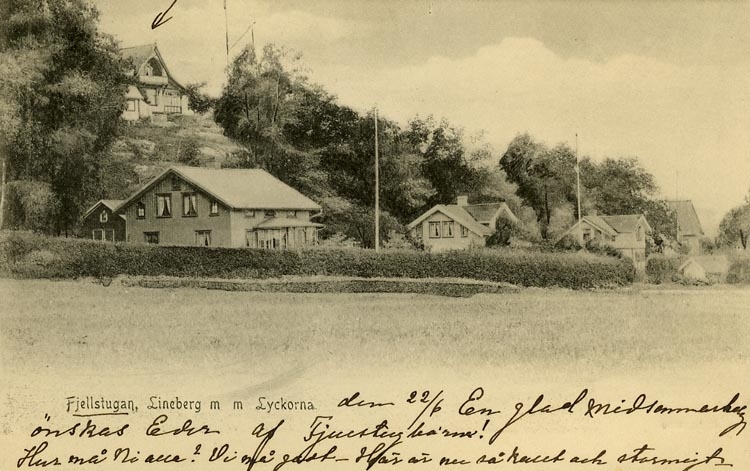 Fjellstugan, Lineberg m m Lyckorna. den 22/6 En glad Midsommarhelg
önskas Eder af Fjellstugubarna!
Hur må Ni alla? Vi må godt – Här är nu så kallt och stormigt –